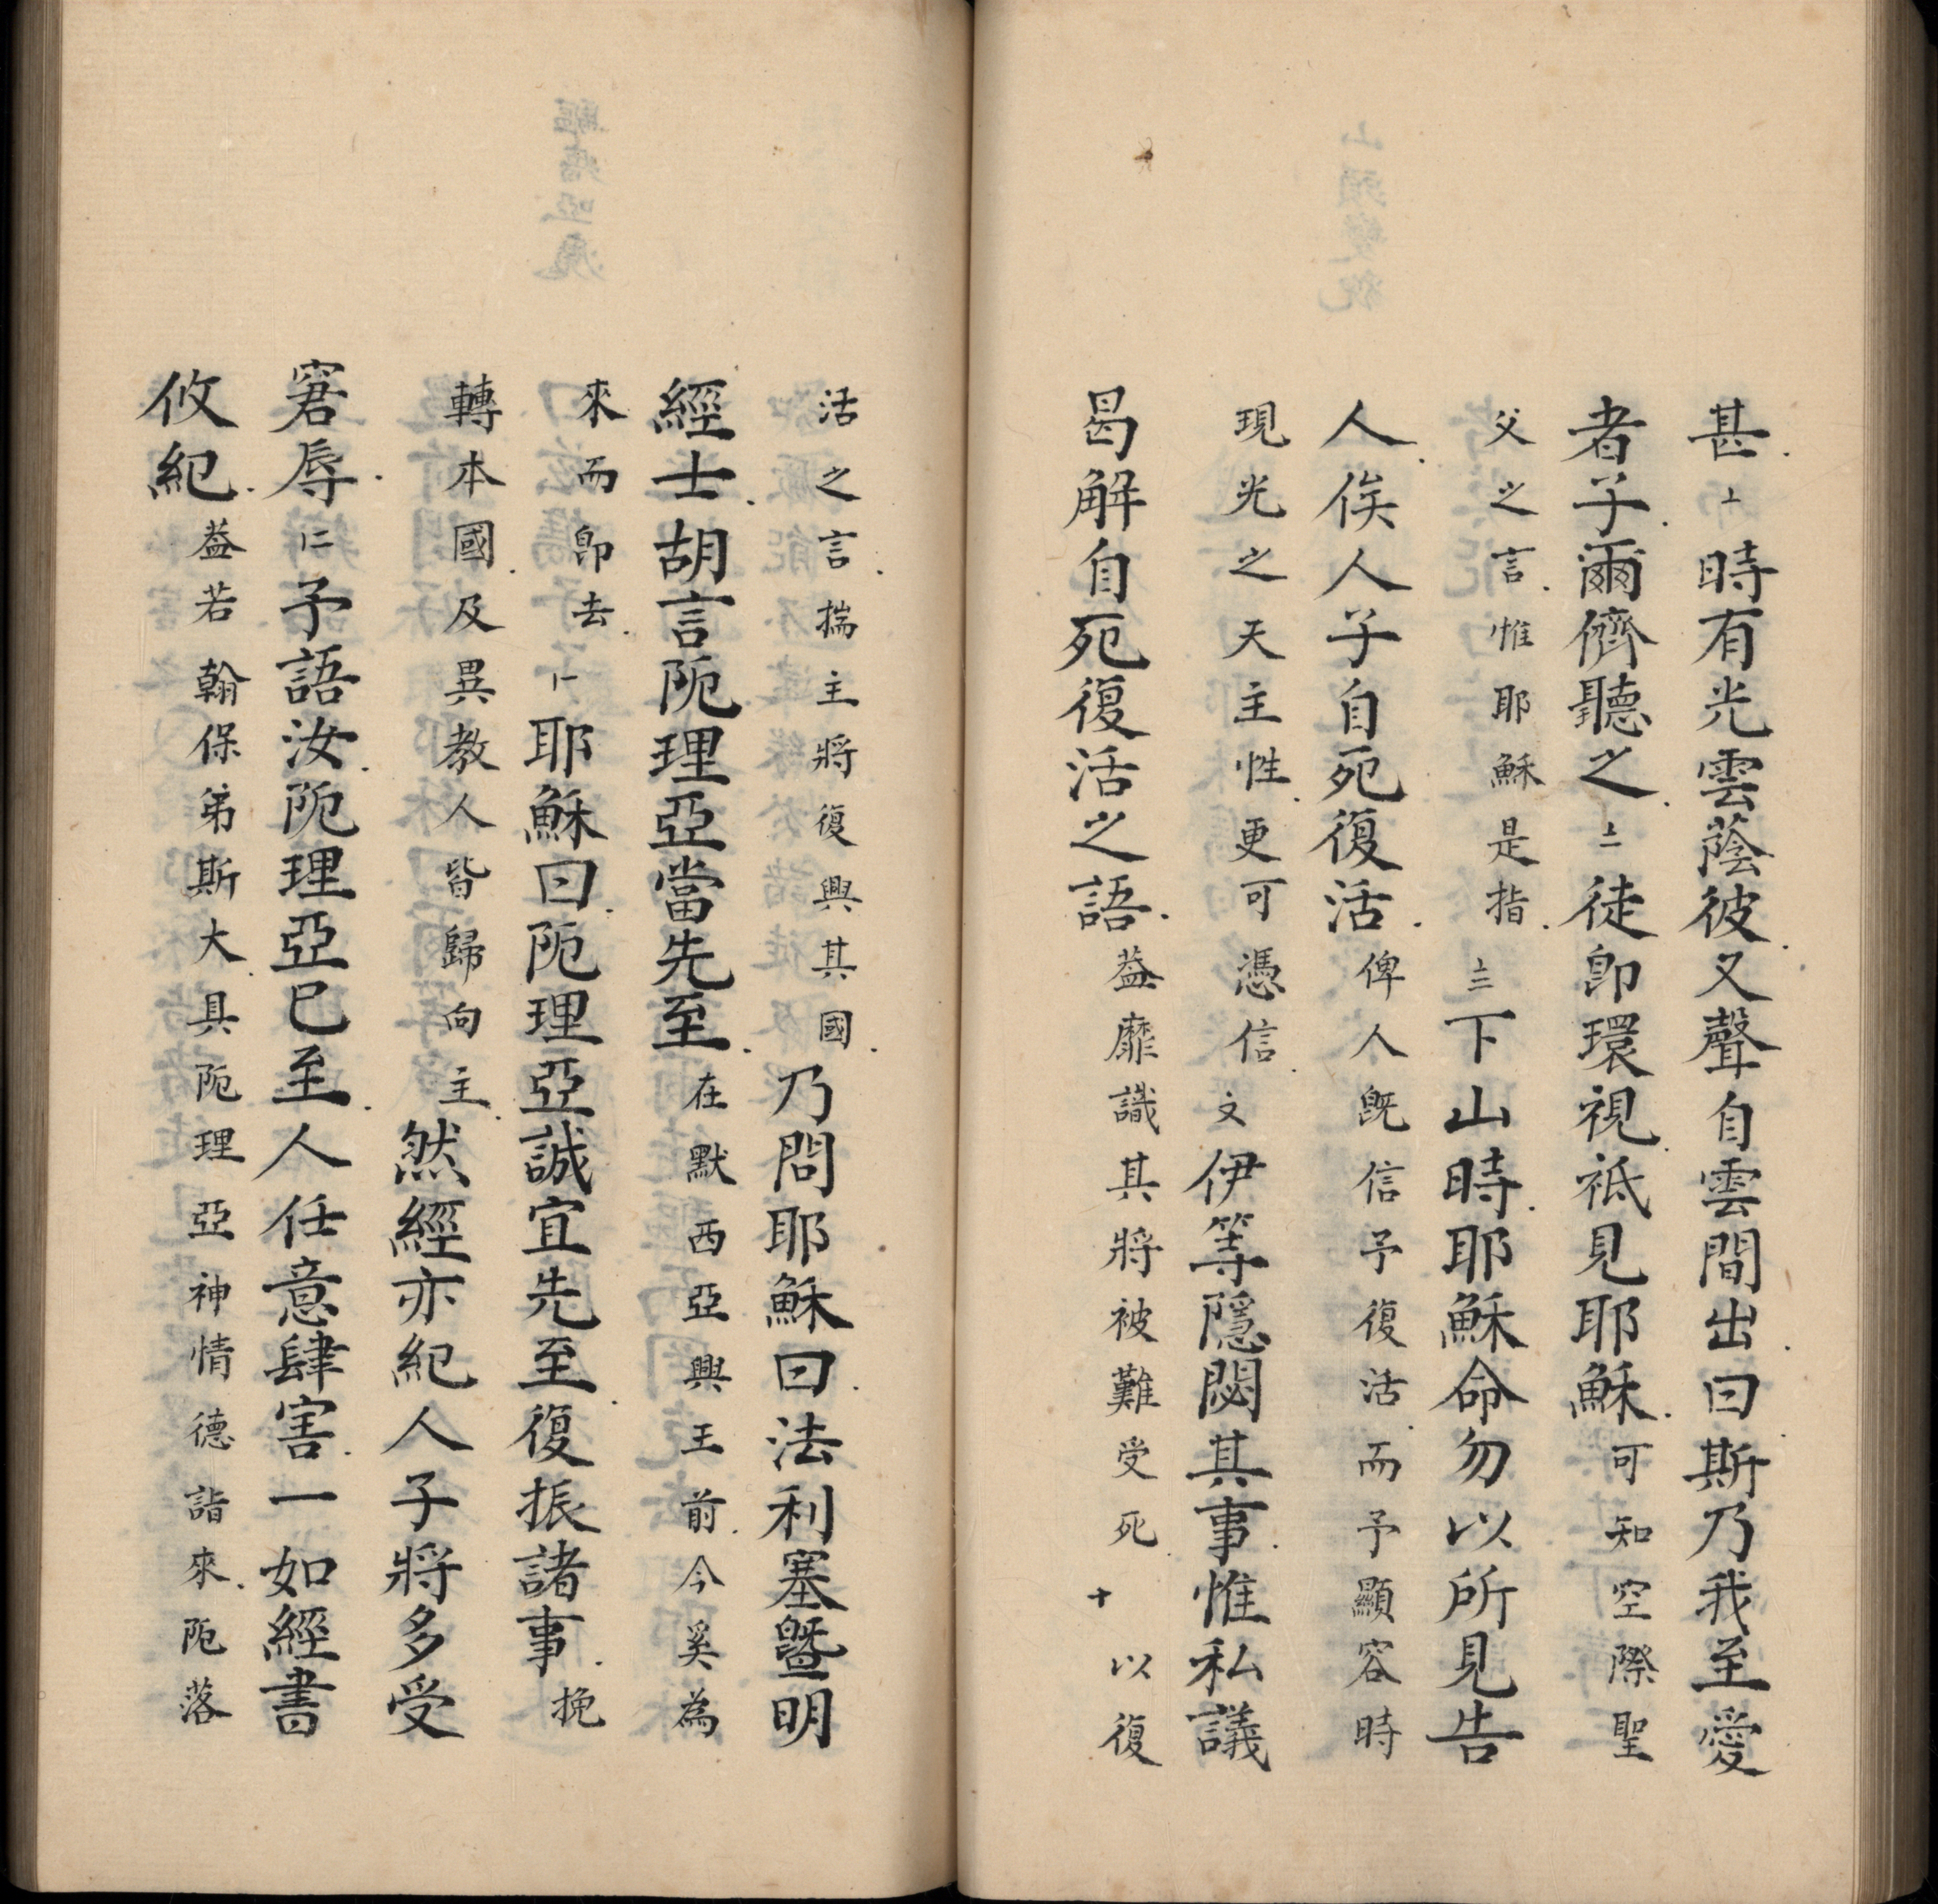 甚. 丄 時有光雲蔭彼. 又聲自雲間出. 曰. 斯乃我至愛
者子. 爾儕聽之. 丄二 徒卽環視. 祗見耶穌. 可知空際聖
父之言. 惟耶穌是指. 丄三 下山時. 耶穌命勿以所見告
人. 俟人子自死復活. 俾人旣信予復活. 而予顯容時
現光之天主性. 更可憑信. 文 伊等隱閟其事. 惟私議
曷解自死復活之語. 葢靡識其將被難受死. 十 以復
活之言. 揣主將復興其國. 乃問耶穌曰. 法利塞曁明
經士. 胡言阨理亞當先至. 在默西亞興王前. 今奚為
來而卽去. 卜 耶穌曰. 阨理亞誠宜先至. 復振諸事. 挽
轉本國. 及異教人皆歸向主. 然經亦紀人子將多受
窘辱. 仁 予語汝. 阨理亞巳至. 人任意肆害. 一如經書
攸紀. 葢若翰保弟斯大. 具阨理亞神情德詣來. 阨落